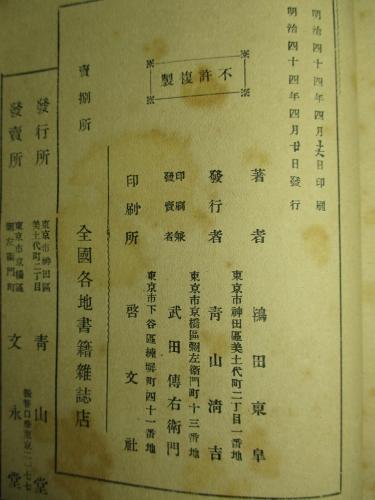 明治四十四年四月十六日印刷
明治四十四年四月廿日發行
不許複製
著者 鴇田東皐
東京市神田區美土代町二丁目一番地
發行者 青山淸吉
東京市京橋區彌左衞門町十三番地
印刷兼發賣者 武田傳右衞門
東京市下谷區練塀町四十一番地
印刷所 啓文社
賣捌所 全國各地書籍雜誌店
發行所 東京市神田區美土代町二丁目 青山堂
發賣所 東京市京橋區彌左衞門町 文永堂